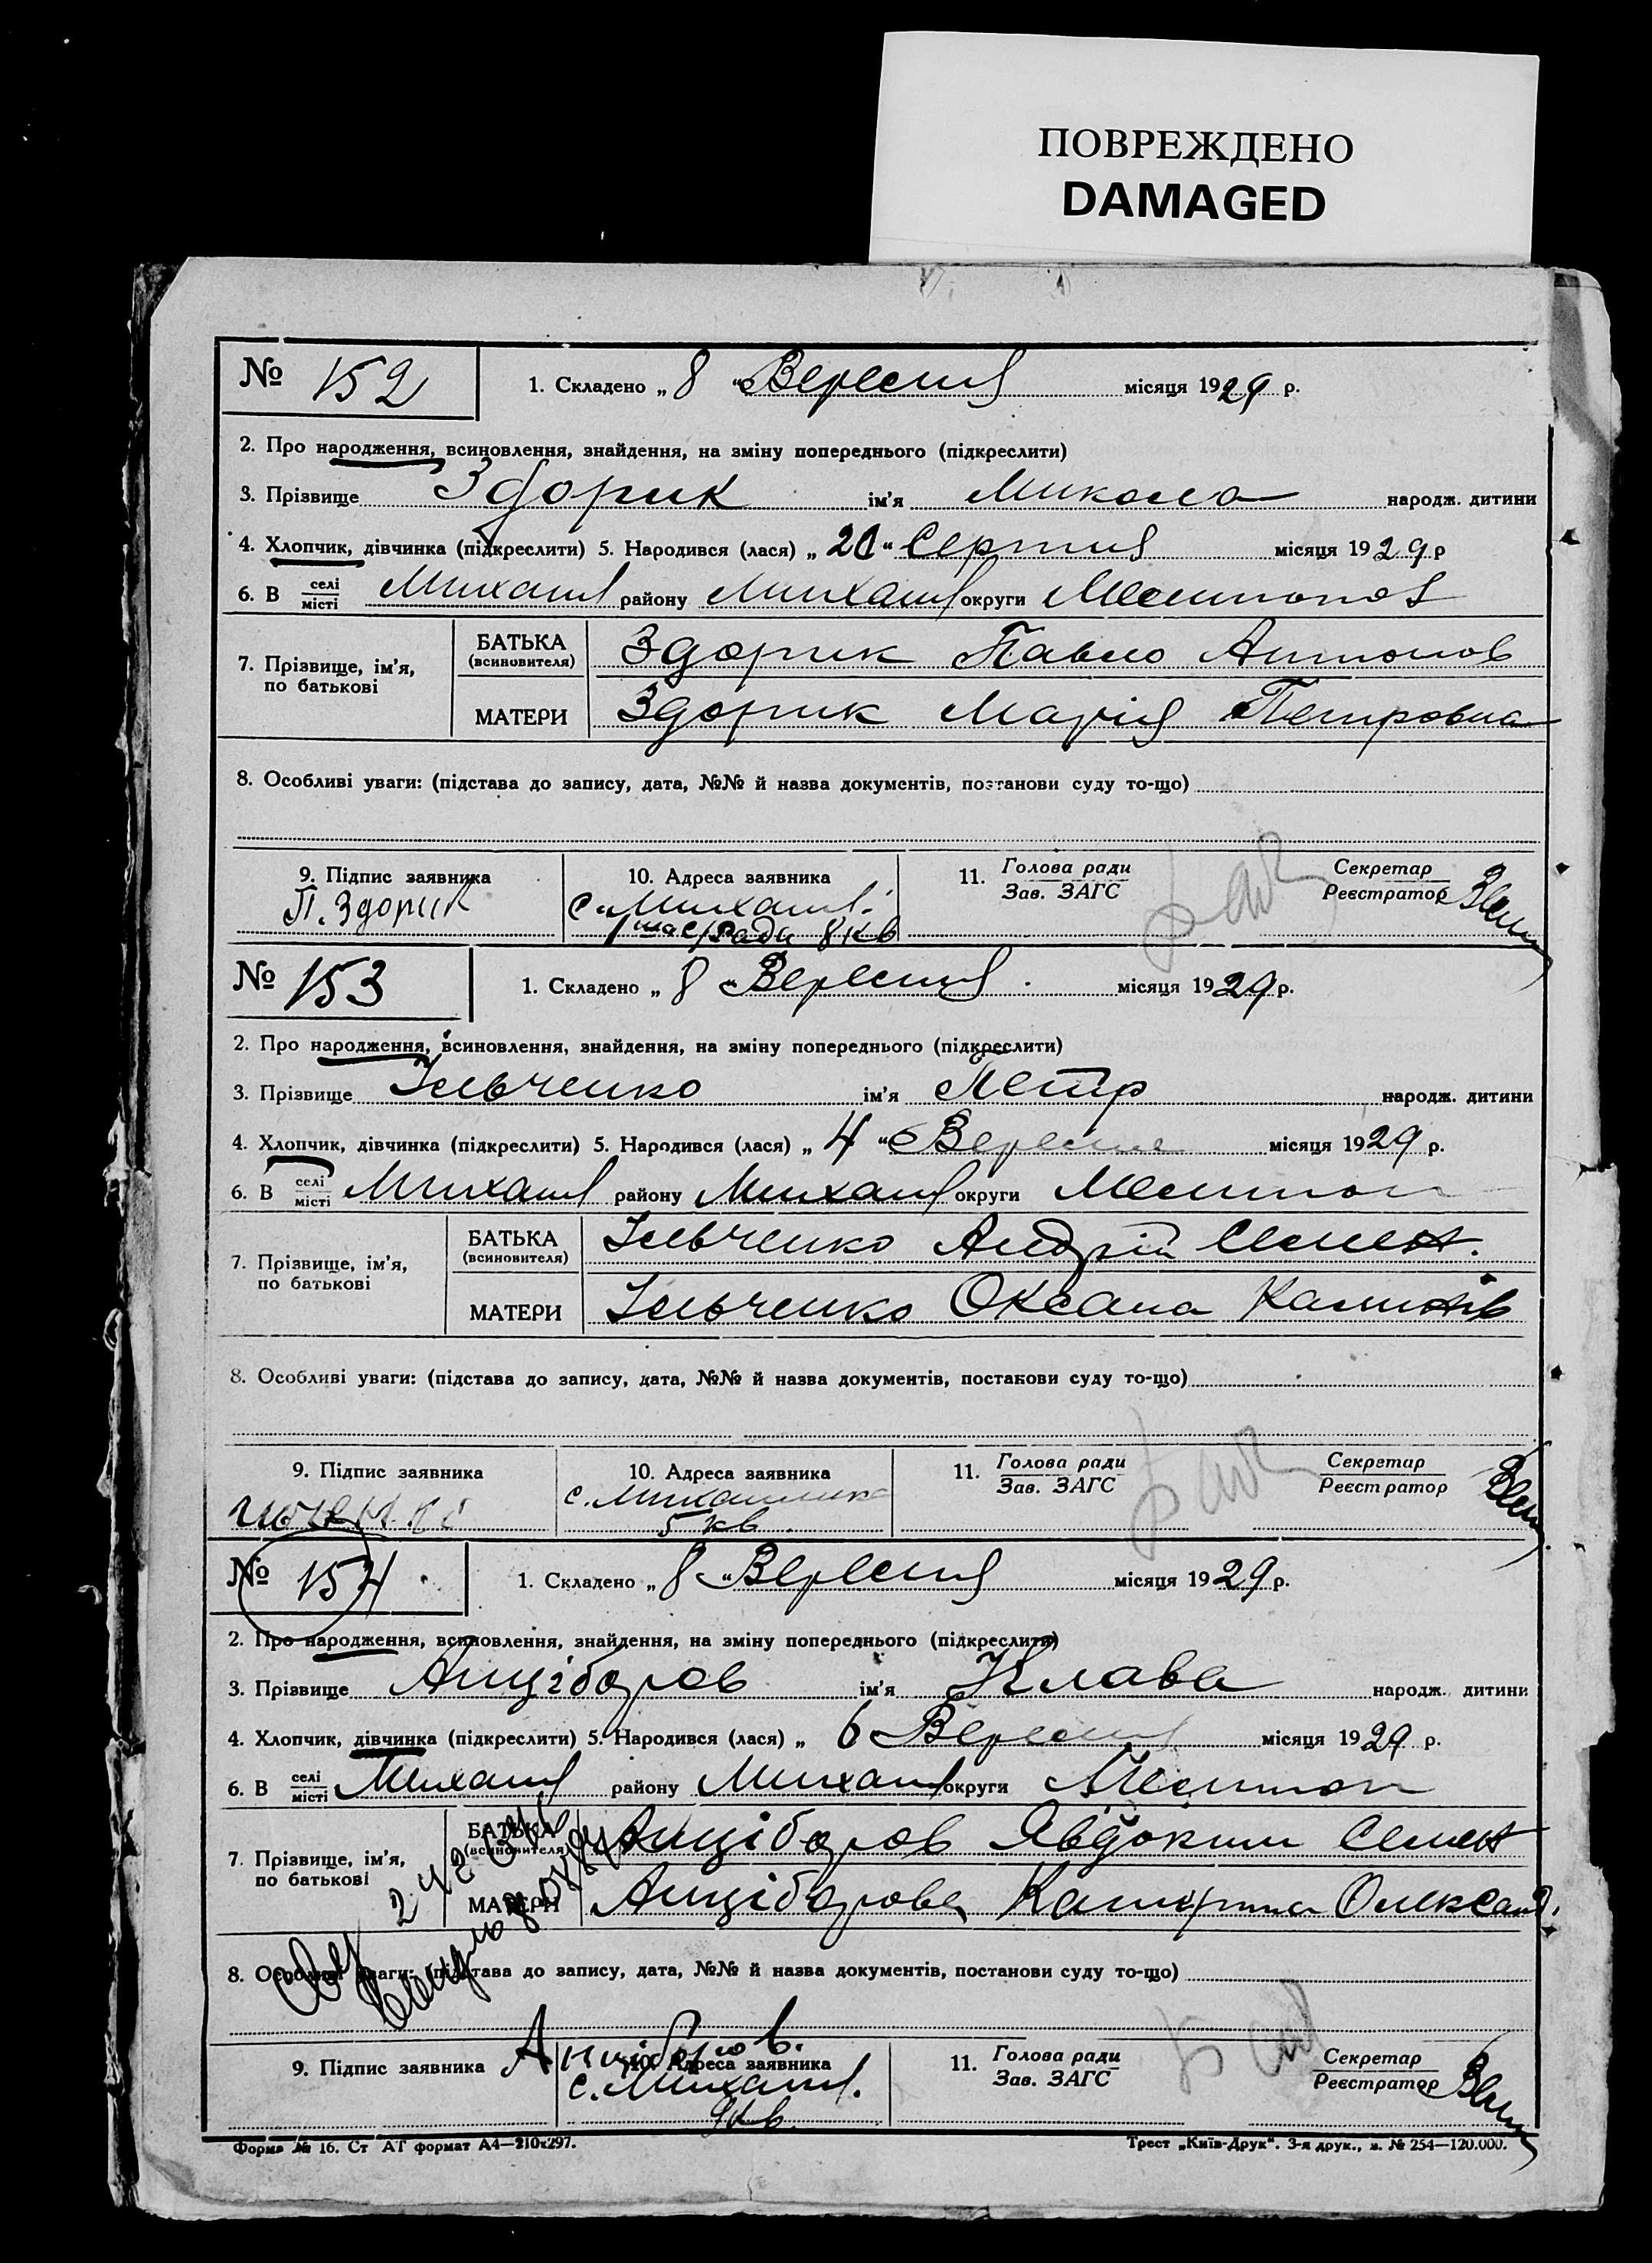 ПОВРЕЖДЕНО
DAMAGED
№ 152
1. Складено „ 8 “ Вересня місяця 1929 р.
2. Про народження, всиновлення, знайдення, на зміну попереднього (підкреслити)
3. Прізвище Здорик ім’я Микола народж. дитини
4. Хлопчик, дівчинка (підкреслити) 5. Народився (лася) „ “ Серпня місяця 1929 р
6. В селі місті Михайл району Михайл округи
7. Прізвище, ім’я, по батькові
БАТЬКА (всиновителя) Здорик Павло Антонов
МАТЕРИ Здорик Марія Петровна
8. Особливі уваги: (підстава до запису, дата, №№ й назва документів, постанови суду то-що)
9. Підпис заявника
П. Здорик
10. Адреса заявника
с. Михайл.
1ша с/Ради 8 кв
11. Голова ради
Зав. ЗАГС
Секретар
Реєстратор
№ 153
1. Складено „ 8 “ Вересня місяця 1929 р.
2. Про народження, всиновлення, знайдення, на зміну попереднього (підкреслити)
3. Прізвище Ільченко ім’я Петр народж. дитини
4. Хлопчик, дівчинка (підкреслити) 5. Народився (лася) „ 4 “ Вересня місяця 1929 р.
6. В селі місті Михайл району Михайл округи Мелітоп
7. Прізвище, ім’я, по батькові
БАТЬКА (всиновителя) Ільченко Андрій Семен.
МАТЕРИ Ільченко Оксана
8. Особливі уваги: (підстава до запису, дата, №№ й назва документів, постанови суду то-що)
9. Підпис заявника
10. Адреса заявника
с. Михайлівка
5 кв
11. Голова ради
Зав. ЗАГС
Секретар
Реєстратор
№ 154
1. Складено „ 8 “ Вересня місяця 1929 р.
2. Про народження, всиновлення, знайдення, на зміну попереднього (підкреслити)
3. Прізвище Анціборов ім’я Клава народж. дитини
4. Хлопчик, дівчинка (підкреслити) 5. Народився (лася) „ 6 Вересня місяця 1929 р.
6. В селі місті Михайл району Михайл округи Мелітоп
7. Прізвище, ім’я, по батькові
БАТЬКА (всиновителя) Анціборов Явдоким Семен
МАТЕРИ Анціборова Катерина Олександ.
8. Особливі уваги: (підстава до запису, дата, №№ й назва документів, постанови суду то-що)
9. Підпис заявника
Анціборов.
10. Адреса заявника
с. Михайл.
9 кв
11. Голова ради
Зав. ЗАГС
Секретар
Реєстратор
Форма № 16. Ст АТ формат А4—210х297.
Трест „Київ-Друк“. 3-я друк., з. № 254—120.000.